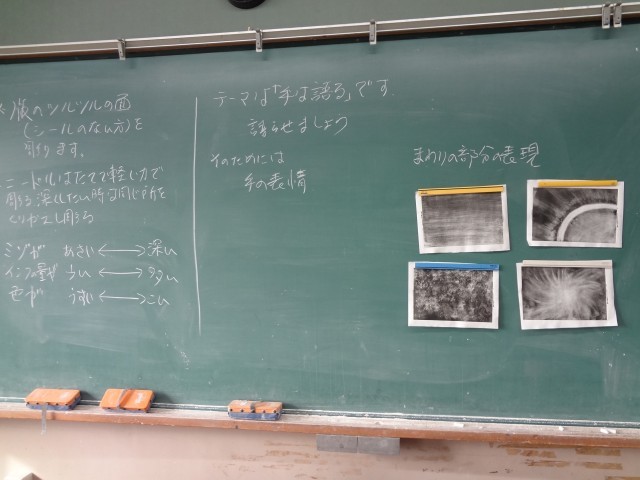 ※版のツルツルの面
(シールのない方)を
彫ります。
ニードルはたてて軽い力で
彫る 深くしたい時は同じ所を
くりかえし彫る
ミゾが あさい ⟷ 深い
インクの量が 少い ⟷ 多い
色が うすい ⟷ こい
テーマは「手は語る」です。
語らせましょう
そのためには
手の表情
まわりの部分の表現